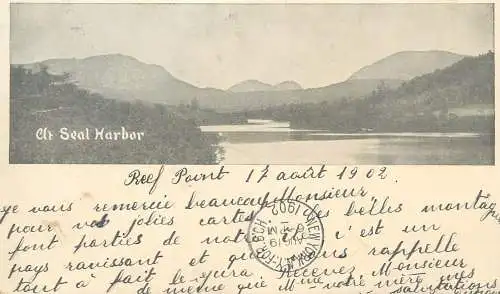 At Seal Harbor
Reef Point 17 août 1902.
Je vous remercie beaucoup Monsieur,
pour vos jolies cartes. Ces belles montagnes
font parties de notre c'est un
pays ravissant et qui vous rappelle
tout à fait le Jura. Recevez Monsieur
de même que notre mère mes
salutations
NEW YORK, N.Y. FOR. BCH.
AUG 19
1902